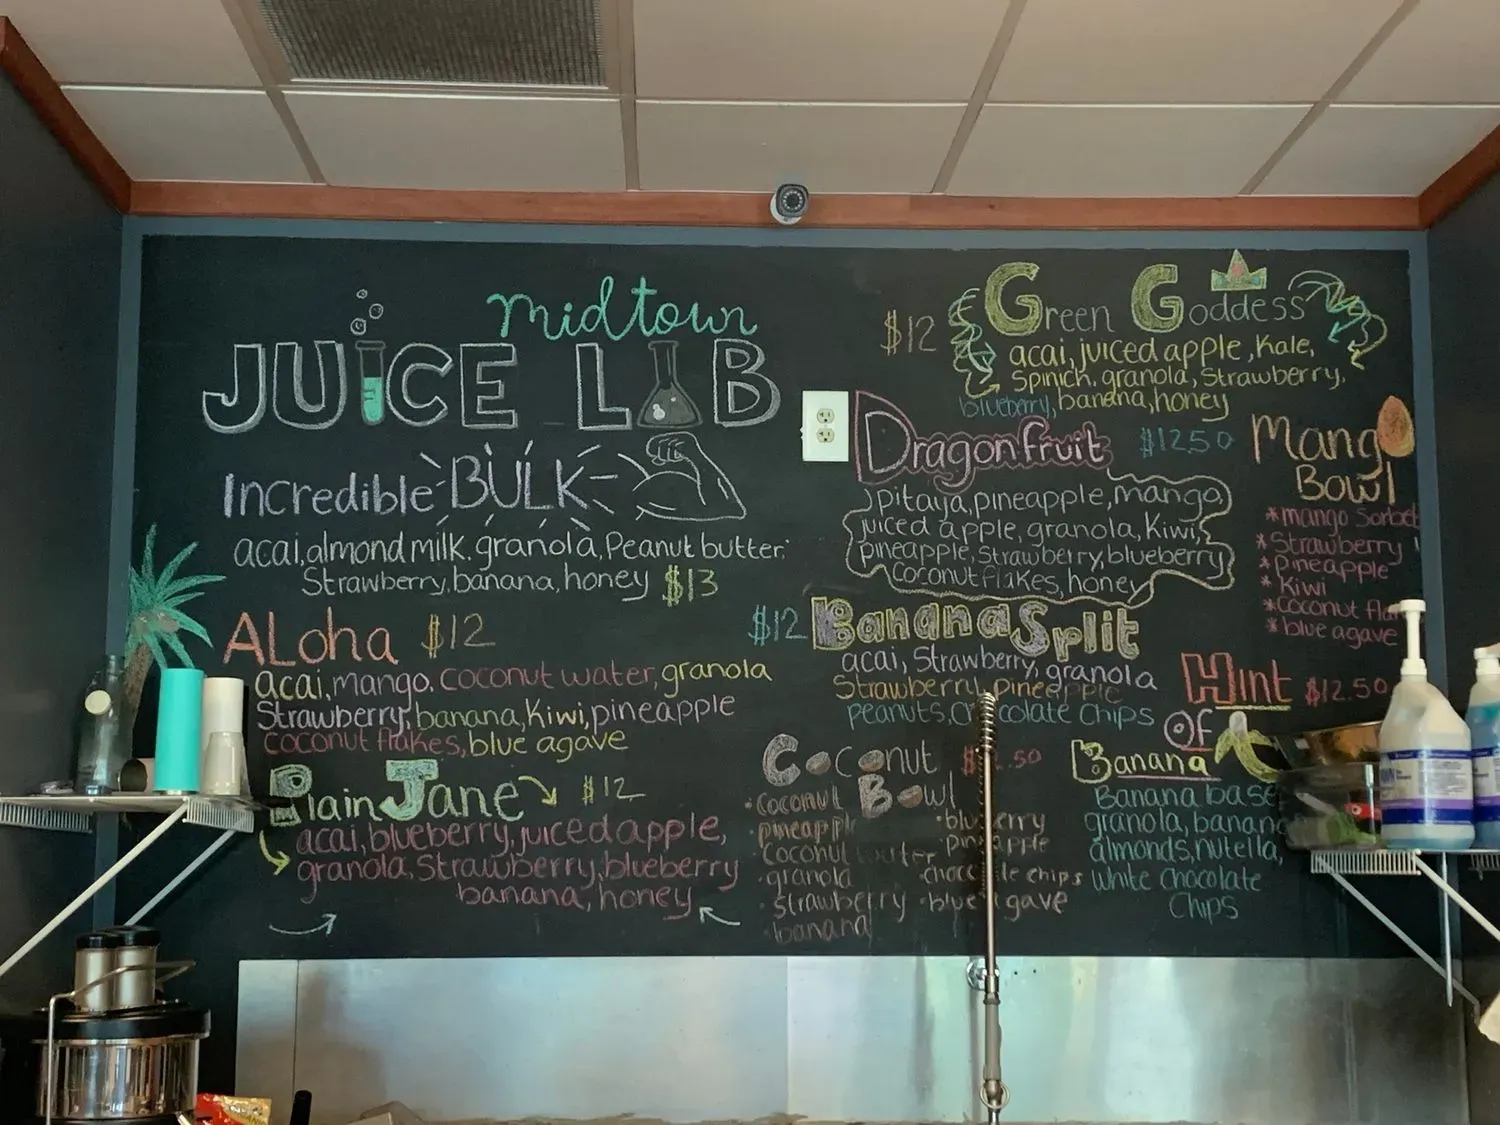 midtown
JUICE LAB
Incredible BULK
acai, almond milk, granola, Peanut butter,
Strawberry, banana, honey $13
ALoha $12
acai, mango, coconut water, granola
Strawberry, banana, Kiwi, pineapple
coconut flakes, blue agave
Plain Jane $12
acai, blueberry, juiced apple,
granola, Strawberry, blueberry
banana, honey
$12 Green Goddess
acai, juiced apple, Kale,
Spinich, granola, Strawberry,
blueberry, banana, honey
Dragonfruit $1250
pitaya, pineapple, mango,
juiced apple, granola, Kiwi,
pineapple, Strawberry, blueberry
coconut flakes, honey
$12 Banana Split
acai, Strawberry, granola
Strawberry, pineapple
peanuts, chocolate chips
Coconut Bowl
.50
• coconut
• pineapple
coconut
• granola
• Strawberry
• banana
• blueberry
• pineapple
• chips
• blue agave
Mango
Bowl
* mango Sorbet
* Strawberry
* pineapple
* Kiwi
* coconut
* blue agave
Hint $12.50
OF
Banana
Banana base
granola, banana
almonds, nutella,
white chocolate
Chips